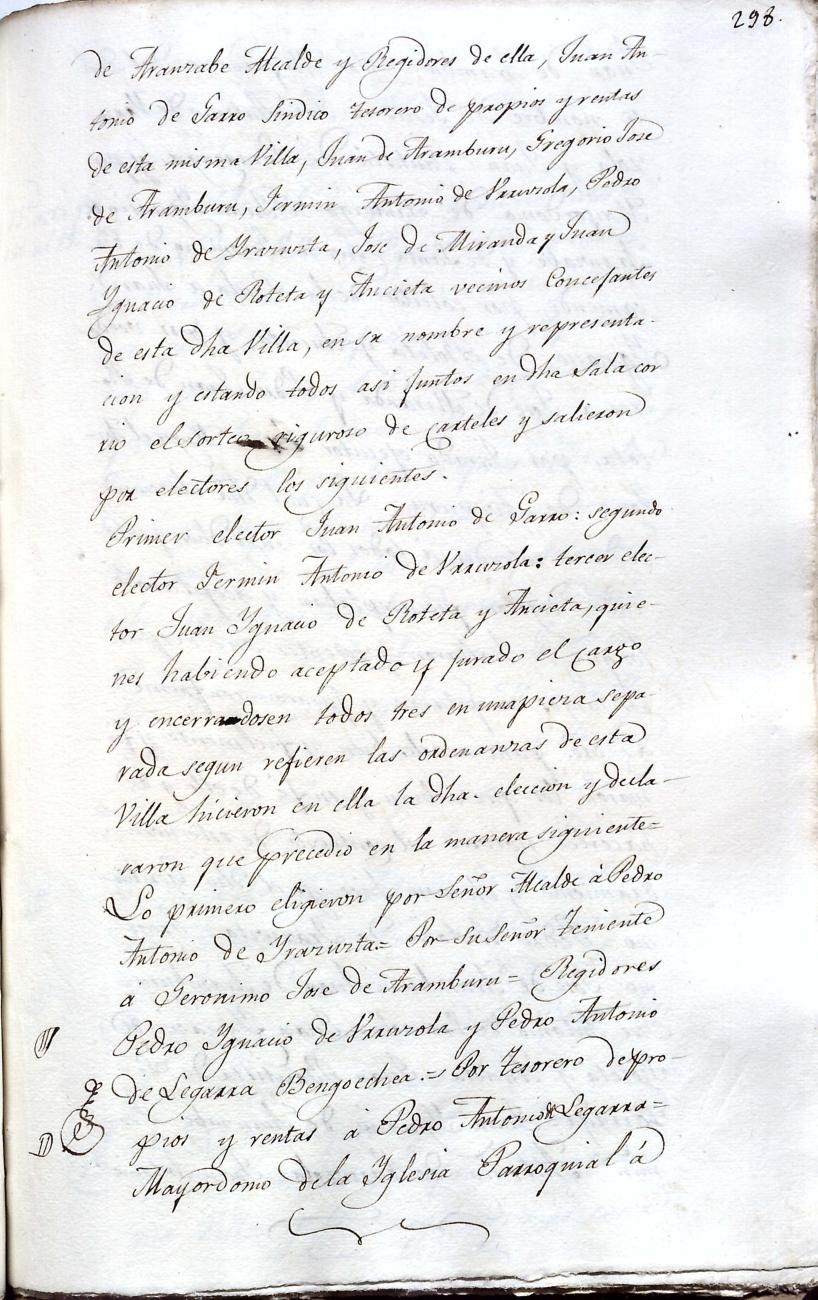 298.
de Aranzabe Alcalde y Regidores de ella, Juan An-
tonio de Garro Sindico tesorero de propios y rentas
de esta misma Villa, Juan de Aramburu, Gregorio Jose
de Aramburu, Fermin Antonio de Urruzola, Pedro
Antonio de Yrazuzta, Jose de Miranda y Juan
Ygnacio de Roteta y Ancieta vecinos Concejantes
de esta dha Villa, en su nombre y representa-
cion y estando todos asi juntos en dha Sala cor
rió el sorteo riguroso de carteles y salieron
por electores los siguientes.
Primer elector Juan Antonio de Garro: segundo
elector Fermin Antonio de Urruzola: tercer elec-
tor Juan Ygnacio de Roteta y Ancieta, quie-
nes habiendo aceptado y jurado el cargo
y encerrandosen todos tres en una pieza sepa-
rada segun refieren las ordenanzas de esta
Villa hicieron en ella la dha. eleccion y decla-
raron que precedio en la manera siguiente=
Lo primero eligieron por Señor Alcalde á Pedro
Antonio de Yrazuzta= Por su Señor Teniente
á Geronimo Jose de Aramburu= Regidores
Pedro Ygnacio de Urruzola y Pedro Antonio
de Legarra Bengoechea.= Por Tesorero de pro-
pios y rentas á Pedro Antonio de Legarra=
Mayordomo de la Yglesia Parroquial á